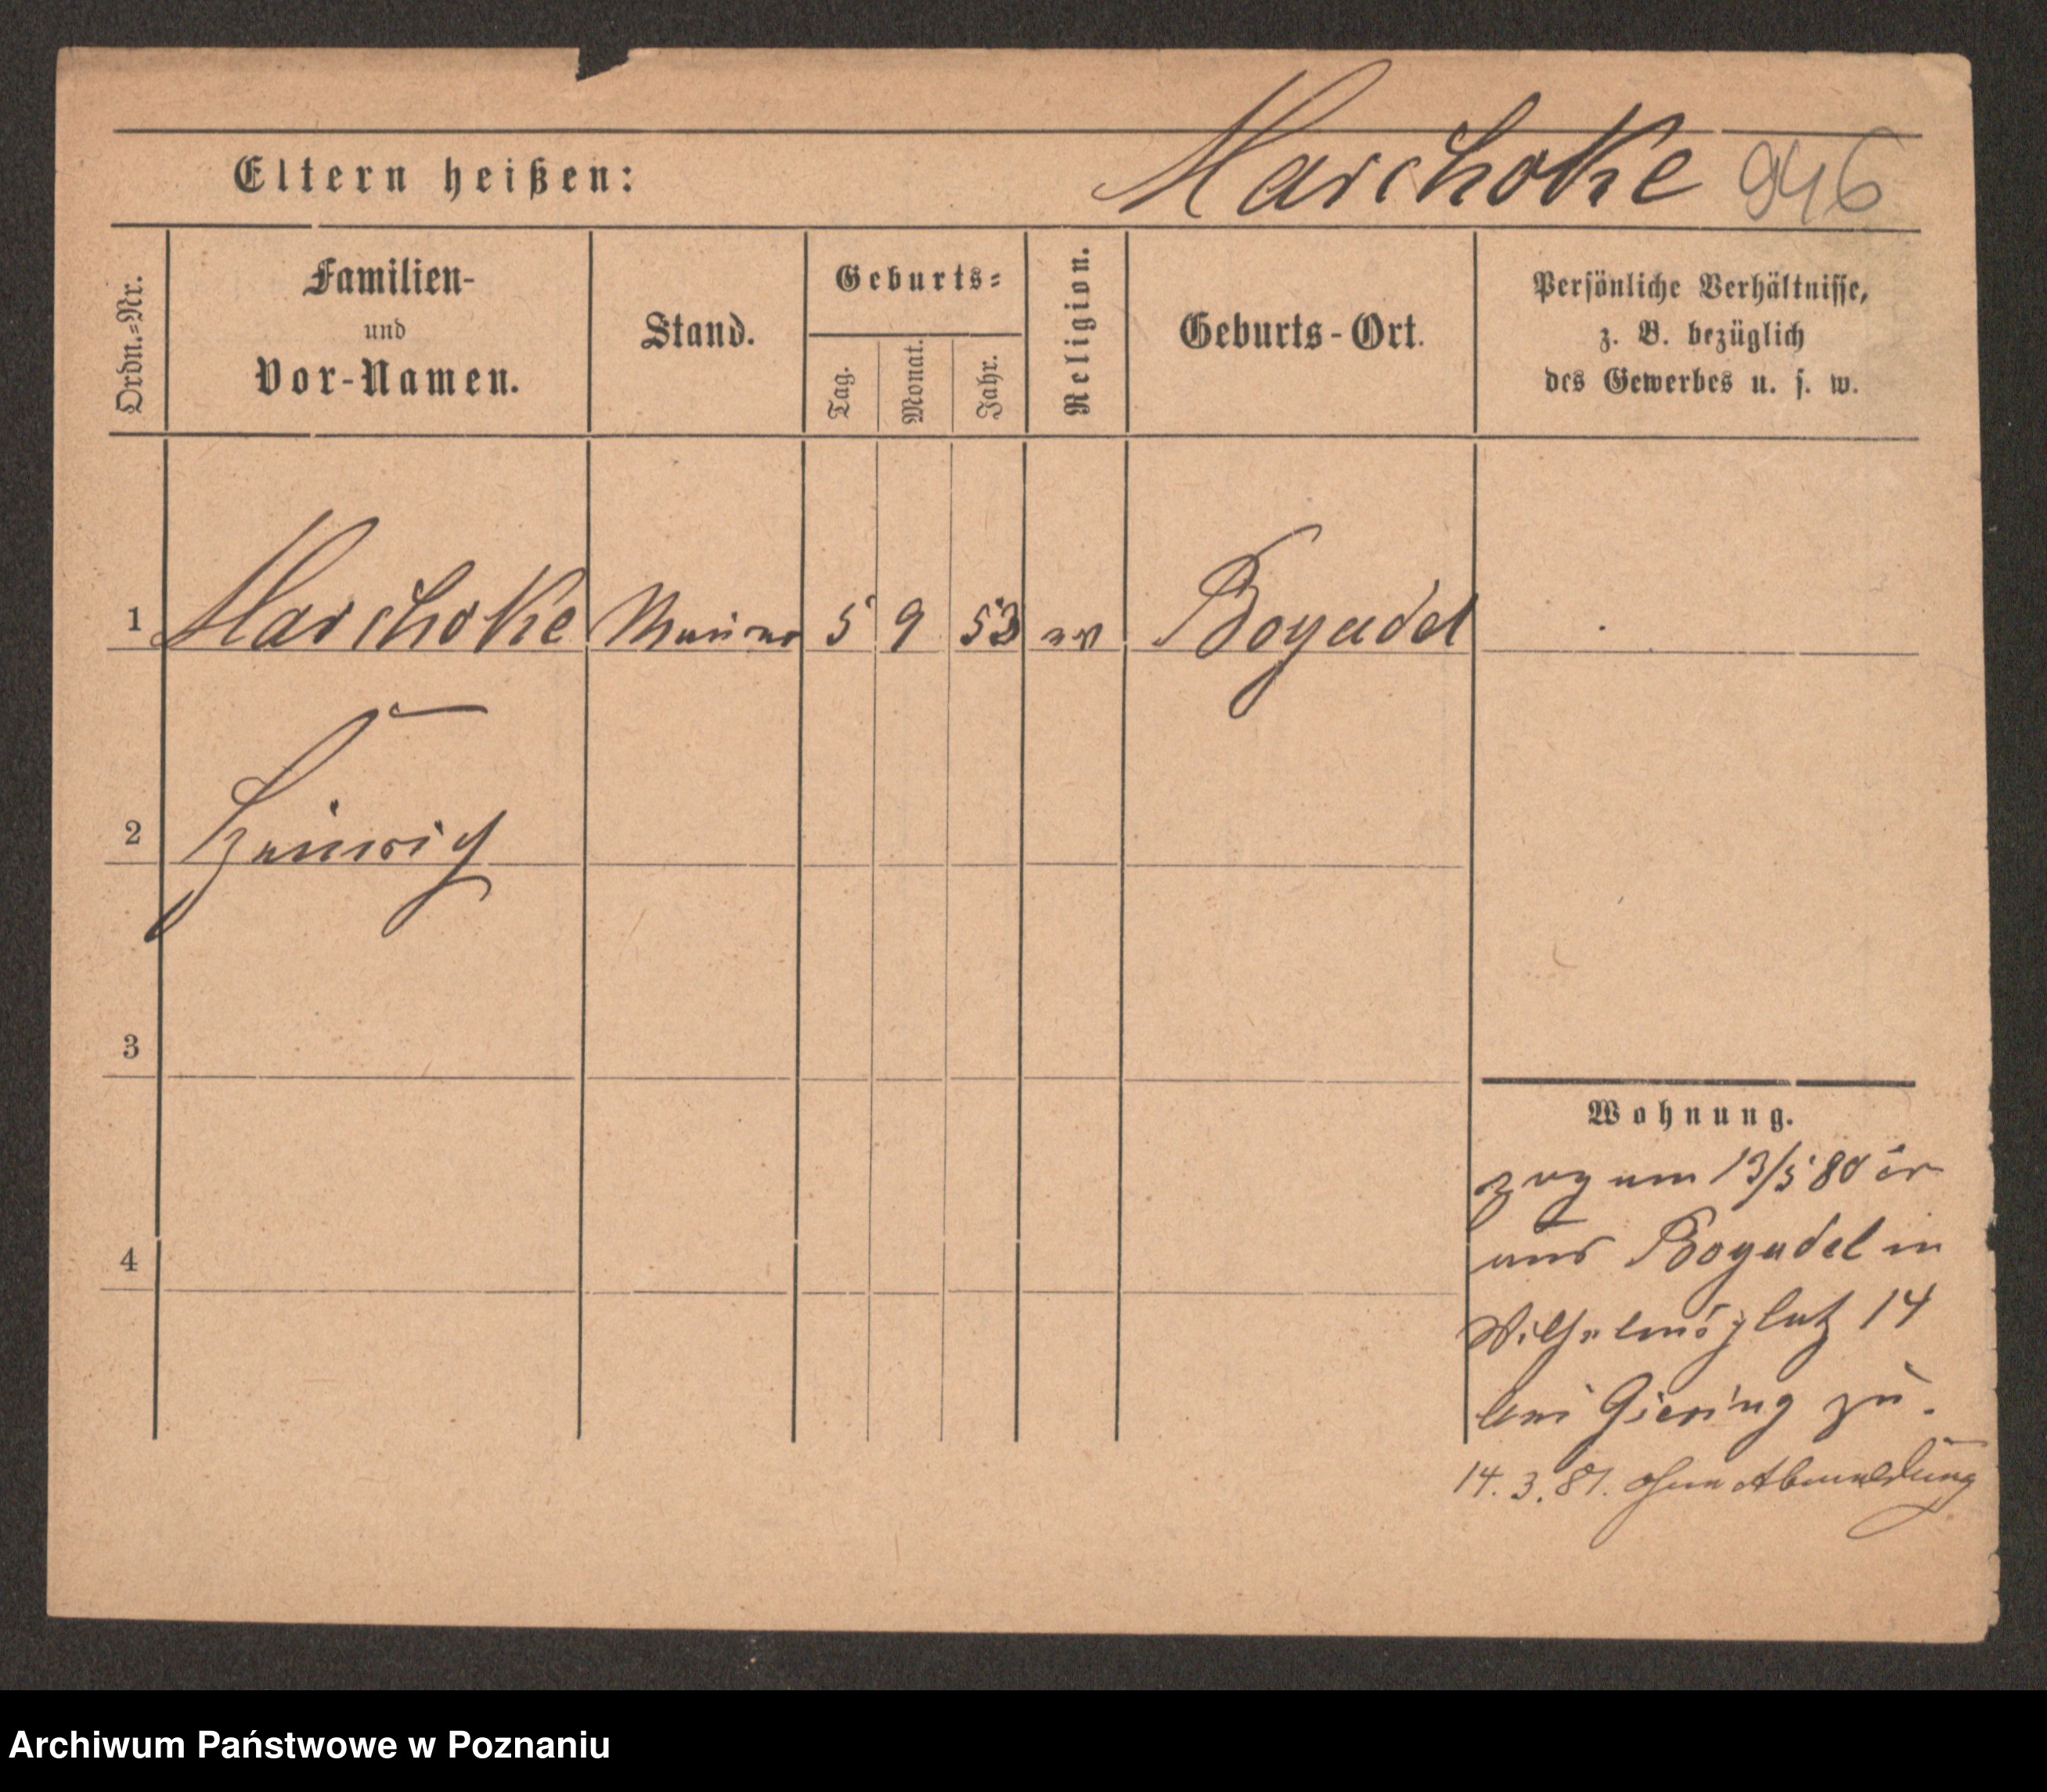 Eltern heißen: Marschoke 946
Ordn.=Nr.
Familien-
und
Vor-Namen.
Stand.
Geburts=
Tag.
Monat.
Jahr.
Religion.
Geburts-Ort.
Persönliche Verhältnisse,
z. B. bezüglich
des Gewerbes u. s. w.
1 Marschoke Maurer 5 9 53 ev Boyadel
2 Heinrich
3
4
Wohnung.
zog am 13/5 80 er
aus Boyadel in
Wilhelmsplatz 14
bei Giering zu.
14. 3. 81. ohne Abmeldung
Archiwum Państwowe w Poznaniu